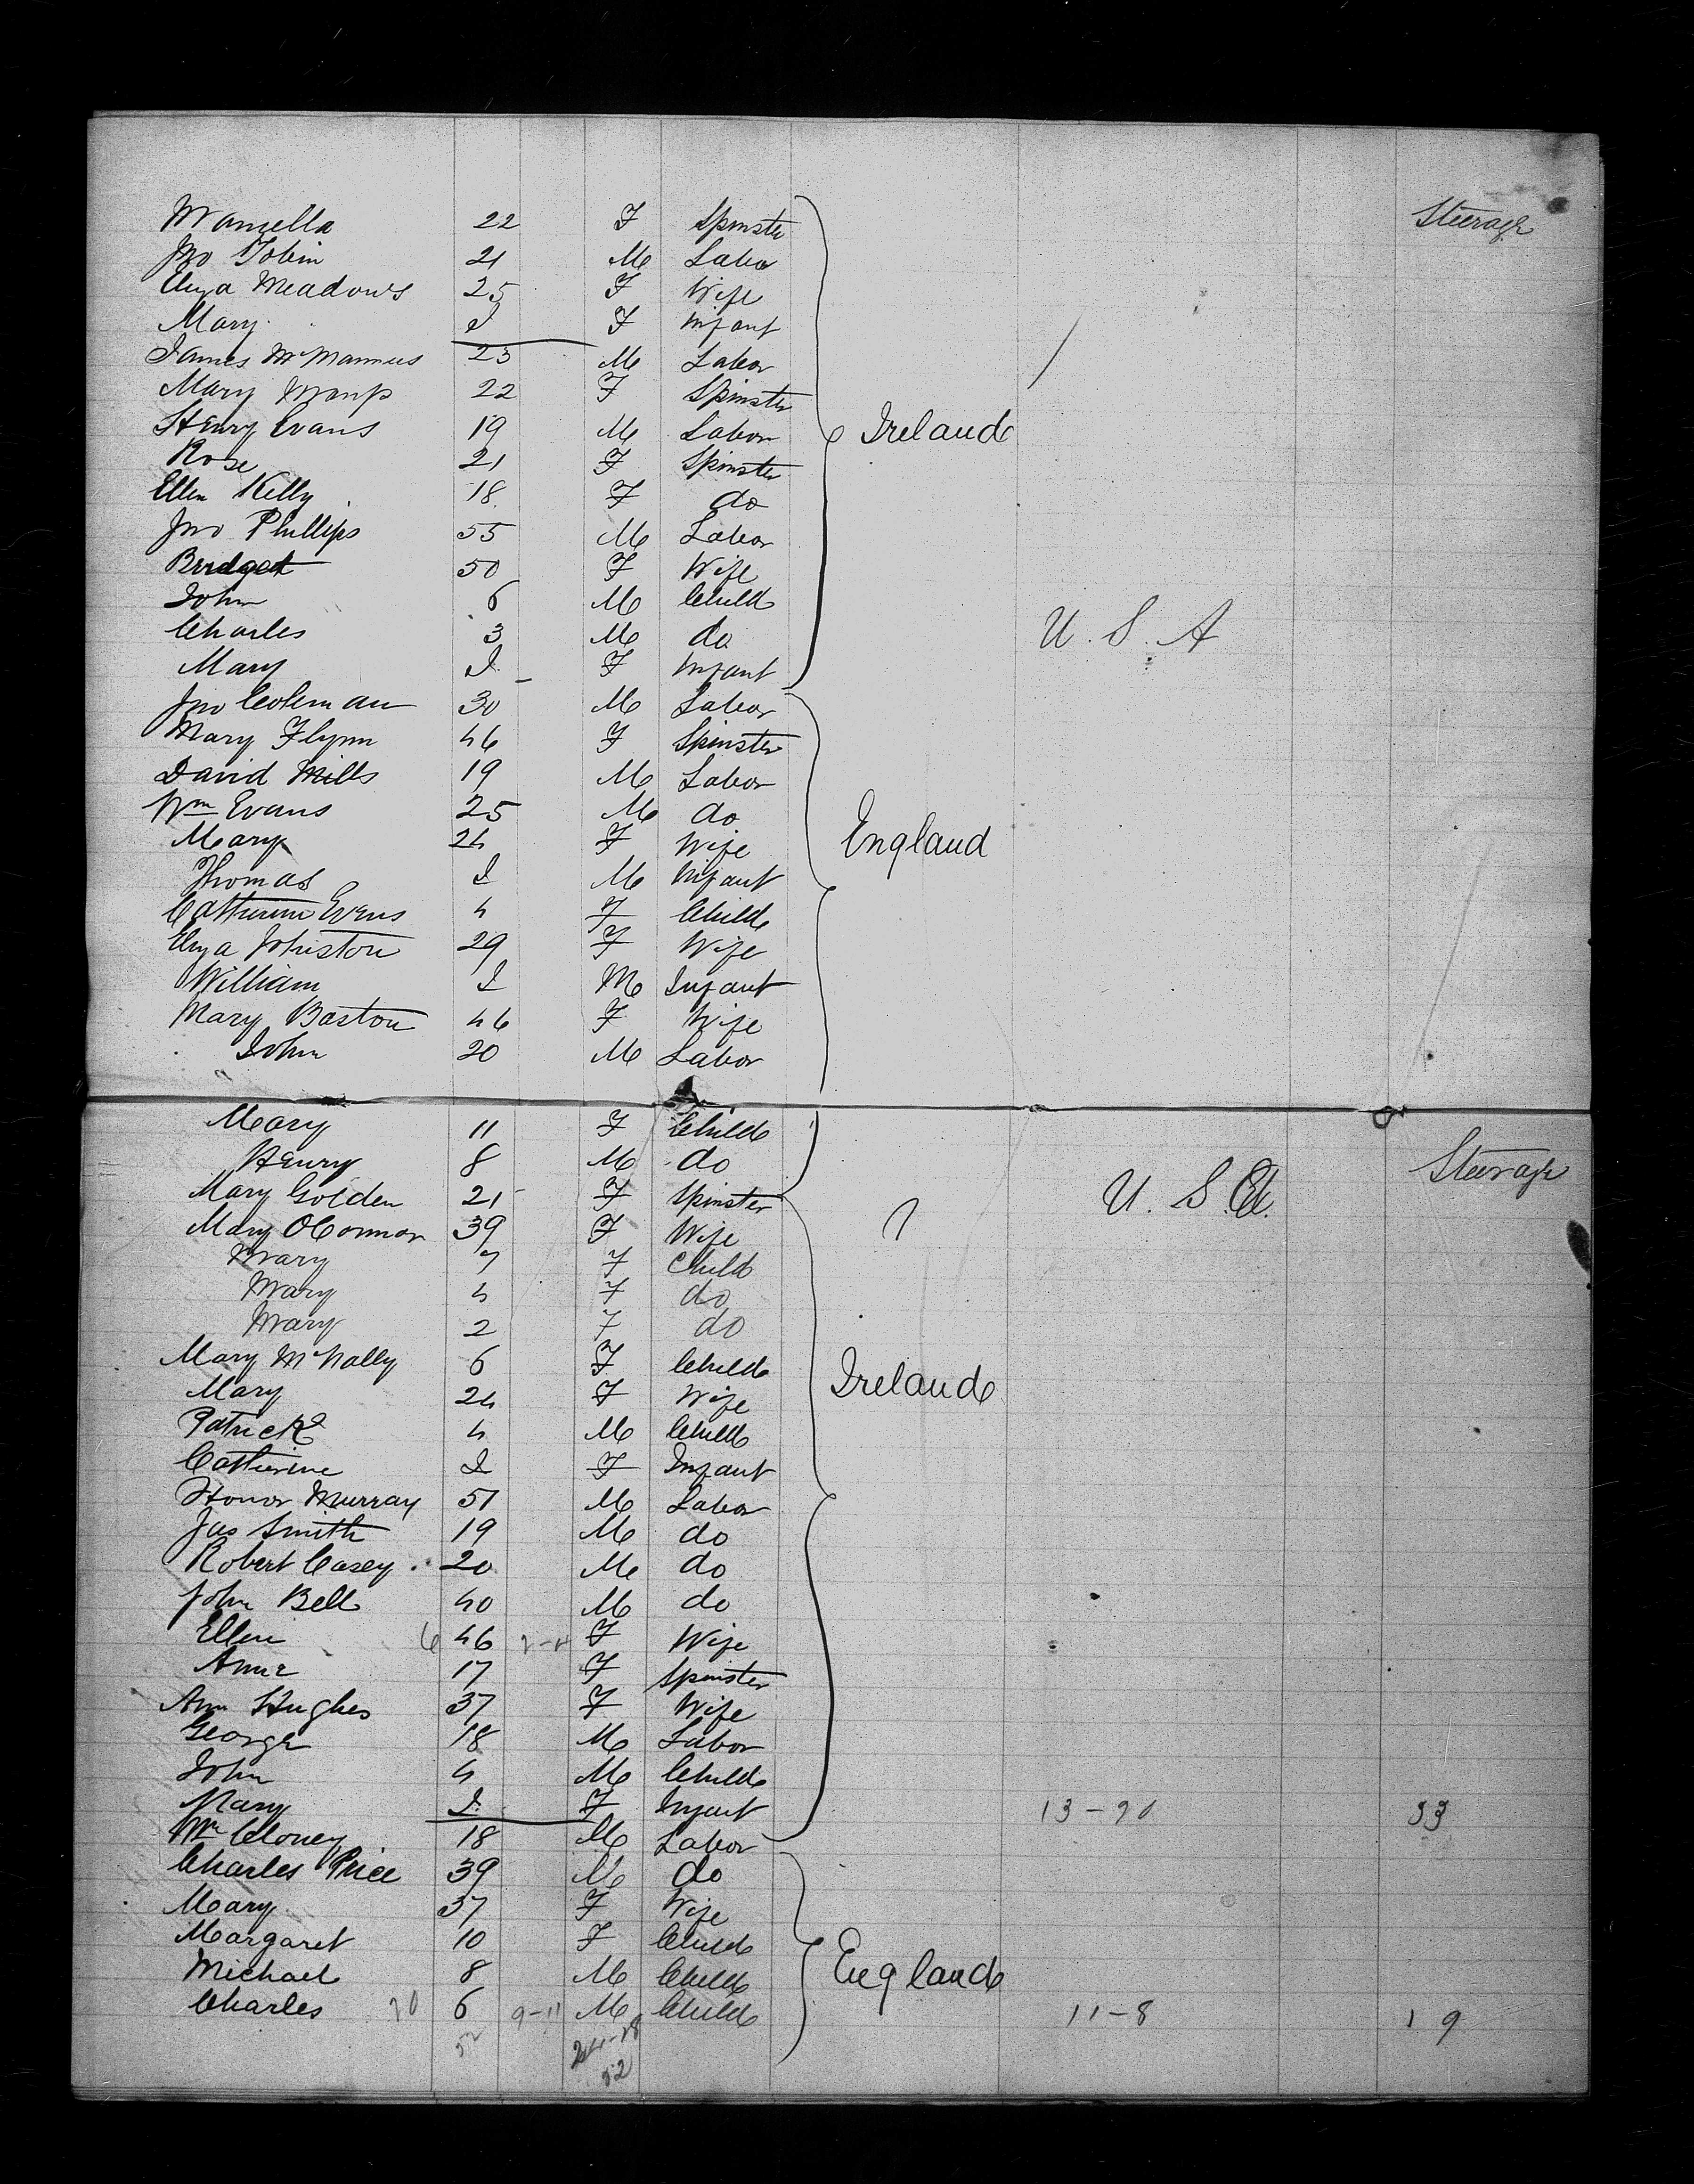 22 F Spinster Steerage
Jno Tobin 21 M Labor
Eliza Meadows 25 F Wife
Mary I F Infant
James McMannus 23 M Labor
Mary 22 F Spinster
Henry Evans 19 M Labor
Ireland
Rose 21 F Spinster
Ellen Kelly 18 F do
Jno Phillips 55 M Labor
Bridget 50 F Wife
John 6 M Child
Charles 3 M do
U. S. A
Mary I F Infant
Jno Coleman 30 M Labor
Mary Flynn 46 F Spinster
David Mills 19 M Labor
Wm Evans 25 M do
Mary 24 F Wife
England
Thomas I M Infant
Catherine Evens 4 F Child
Eliza Johnston 29 F Wife
William I M Infant
Mary Baston 46 F Wife
John 20 M Labor
Mary 11 F Child
Henry 8 M do Steerage
Mary Golden 21 F Spinster
U. S. A.
Mary OConnor 39 F Wife
Mary 7 F Child
Mary 4 F do
Mary 2 F do
Mary McNally 6 F Child
Ireland
Mary 24 F Wife
Patrick 4 M Child
Catherine I F Infant
Honor Murray 51 M Labor
Jas Smith 19 M do
Robert Casey 20 M do
John Bell 40 M do
Ellen 6 46 F Wife
Anne 17 F Spinster
Ann Hughes 37 F Wife
George 18 M Labor
John 4 M Child
Mary I F Infant 13-20 33
Wm Cloney 18 M Labor
Charles Price 39 M do
Mary 37 F Wife
Margaret 10 F Child
Michael 8 M Child
England
Charles 20 6 9-11 M Child 11-8 19
52 24-28
52